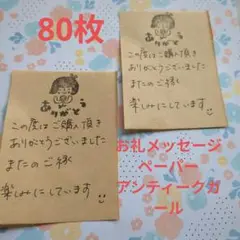 80枚
ありがとう
この度はご購入頂き
ありがとうございました
またのご縁
楽しみにしています
ありがとう
この度はご購入頂き
ありがとうございました
またのご縁
楽しみにしています
お礼メッセージ
ペーパー
アンティークガ
ール